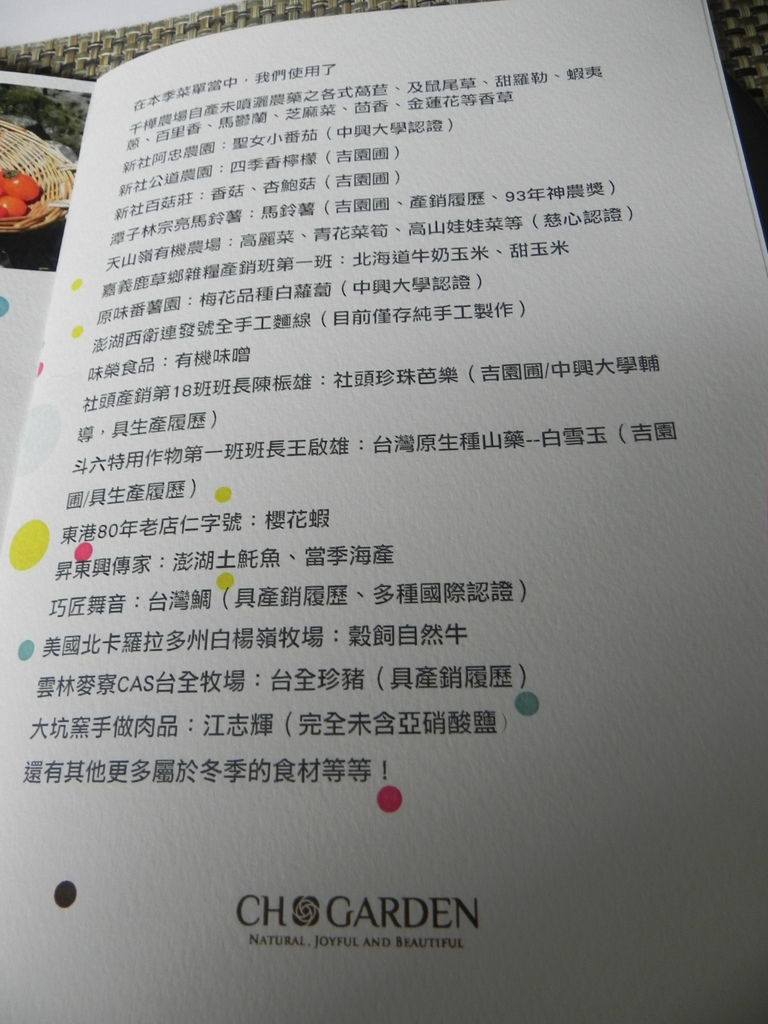 在本季菜單當中，我們使用了
千樺農場自產未噴灑農藥之各式萵苣、及鼠尾草、甜羅勒、蝦夷
蔥、百里香、馬鬱蘭、芝麻菜、茴香、金蓮花等香草
新社阿忠農園：聖女小番茄（中興大學認證）
新社公道農園：四季香檸檬（吉園圃）
新社百菇莊：香菇、杏鮑菇（吉園圃）
潭子林宗亮馬鈴薯：馬鈴薯（吉園圃、產銷履歷、93年神農獎）
天山嶺有機農場：高麗菜、青花菜筍、高山娃娃菜等（慈心認證）
嘉義鹿草鄉雜糧產銷班第一班：北海道牛奶玉米、甜玉米
原味番薯園：梅花品種白蘿蔔（中興大學認證）
澎湖西衛連發號全手工麵線（目前僅存純手工製作）
味榮食品：有機味噌
社頭產銷第18班班長陳振雄：社頭珍珠芭樂（吉園圃/中興大學輔
導，具生產履歷）
斗六特用作物第一班班長王啟雄：台灣原生種山藥--白雪玉（吉園
圃/具生產履歷）
東港80年老店仁字號：櫻花蝦
昇東興傳家：澎湖土魠魚、當季海產
巧匠舞音：台灣鯛（具產銷履歷、多種國際認證）
美國北卡羅拉多州白楊嶺牧場：穀飼自然牛
雲林麥寮CAS台全牧場：台全珍豬（具產銷履歷）
大坑窯手做肉品：江志輝（完全未含亞硝酸鹽）
還有其他更多屬於冬季的食材等等！
CHO GARDEN
NATURAL, JOYFUL AND BEAUTIFUL